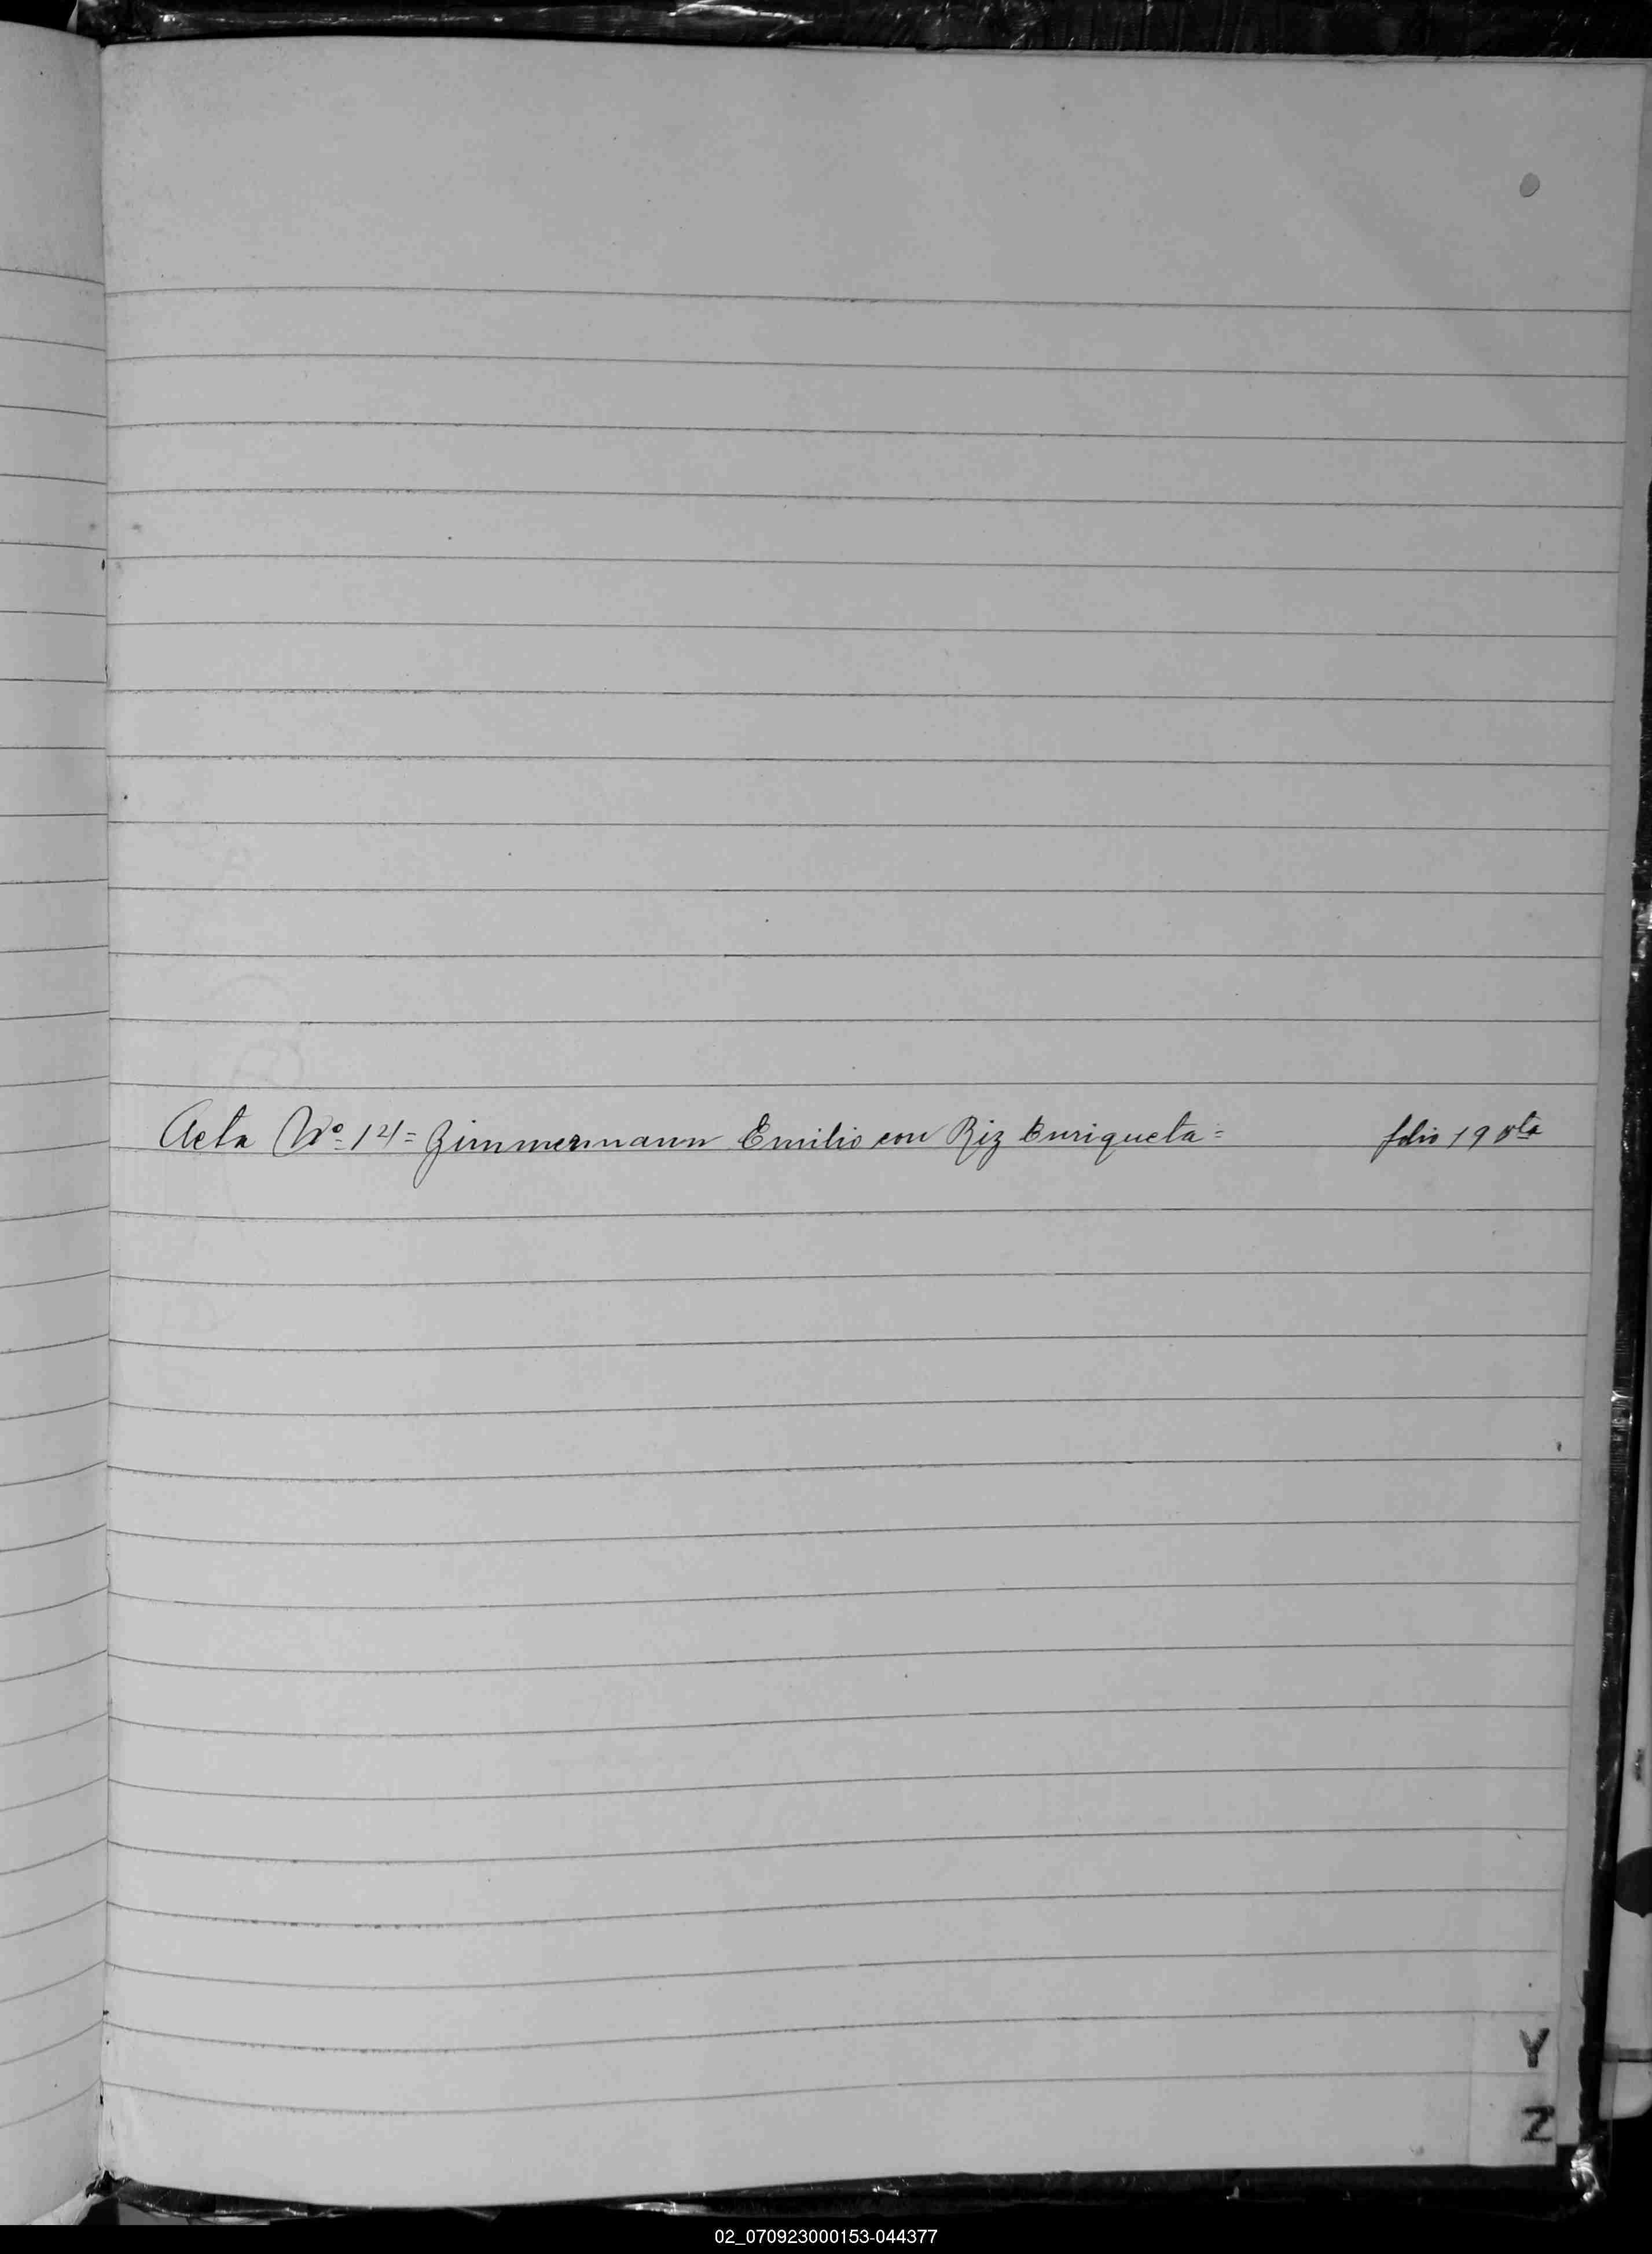 Acta Nº 14= Zimmermann Emilio con Riz Enriqueta= folio 19 vta
Y
Z
02_070923000153-044377